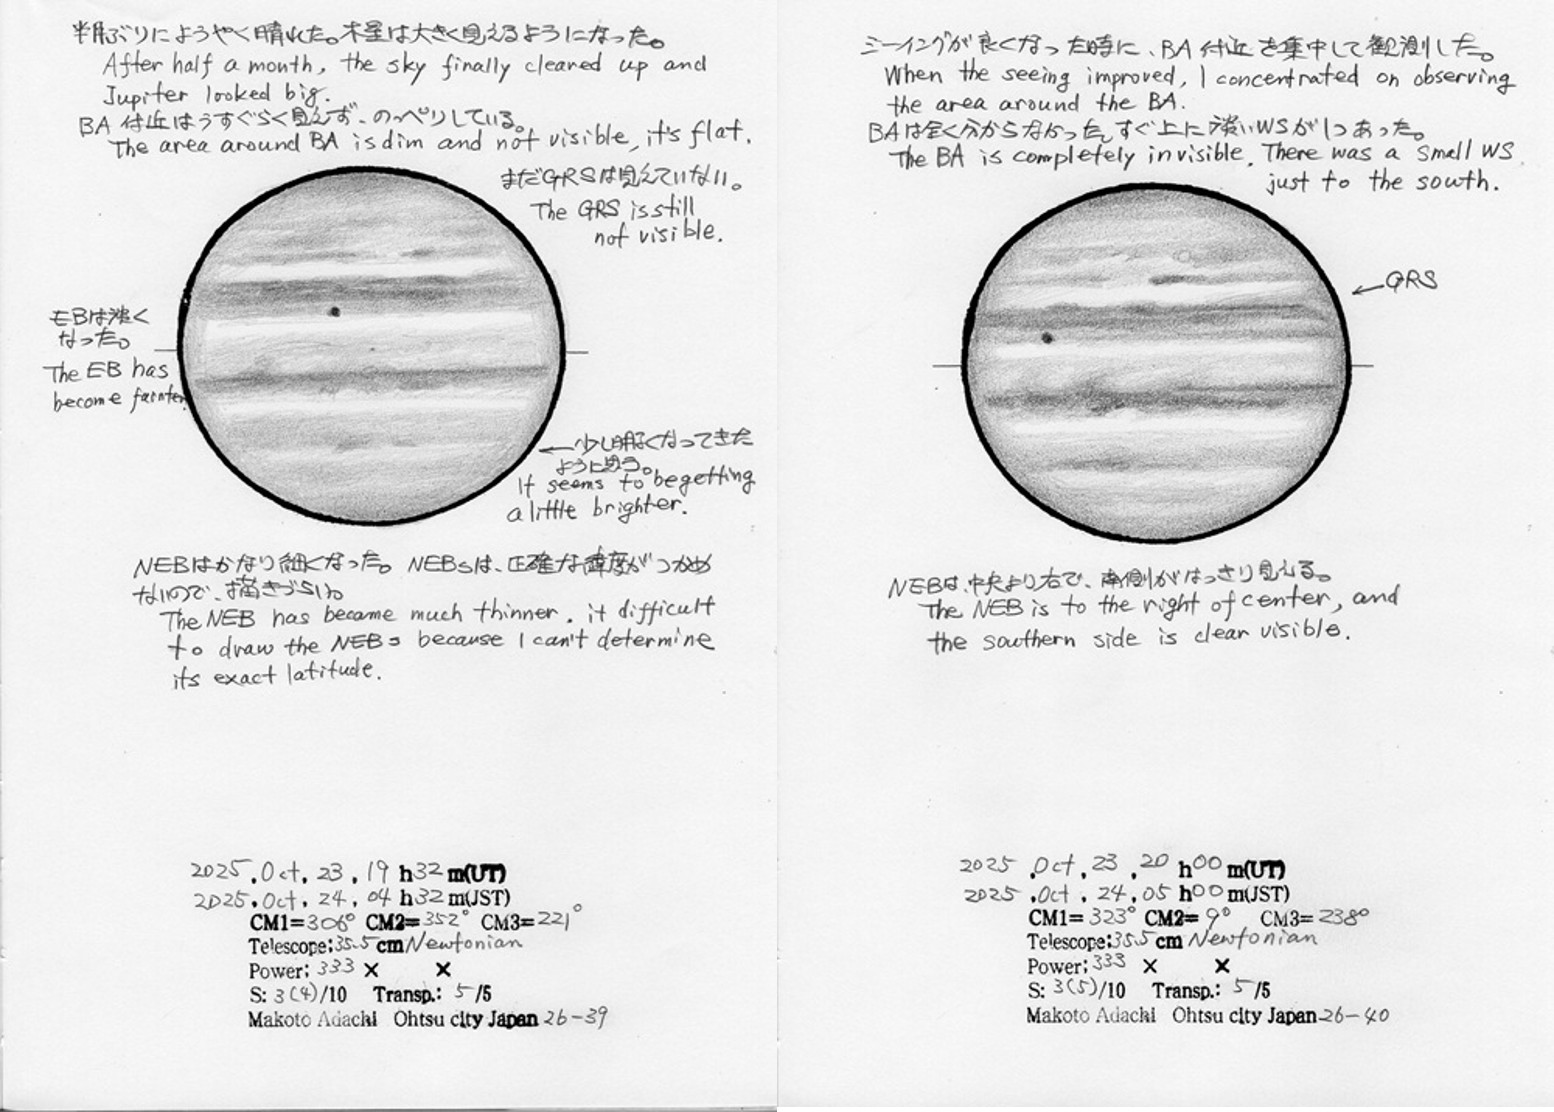 半月ぶりにようやく晴れた。木星は大きく見えるようになった。
After half a month, the sky finally cleared up and
Jupiter looked big.
BA付近はうすぐらく見えず、のっぺりしている。
The area around BA is dim and not visible, it's flat.
まだGRSは見えていない。
The GRS is still
not visible.
EBは淡く
なった。
The EB has
become fainter.
←少し明るくなってきた
ように思う。
It seems to be getting
a little brighter.
NEBはかなり細くなった。NEBsは、正確な緯度がつかめ
ないので、描きづらい。
The NEB has became much thinner. it difficult
to draw the NEBs because I can't determine
its exact latitude.
2025.Oct.23.19h32m(UT)
2025.Oct.24.04h32m(JST)
CM1=306° CM2=352° CM3=221°
Telescope:35.5cm Newtonian
Power:333× ×
S:3(4)/10 Transp.:5/5
Makoto Adachi Ohtsu city Japan 26-39
シーイングが良くなった時に、BA付近を集中して観測した。
When the seeing improved, I concentrated on observing
the area around the BA.
BAは全く分からなかった。すぐ上に淡いWSが1つあった。
The BA is completely invisible. There was a small WS
just to the south.
←GRS
NEBは、中央より右で、南側がはっきり見える。
The NEB is to the right of center, and
the southern side is clear visible.
2025.Oct.23.20h00m(UT)
2025.Oct.24.05h00m(JST)
CM1=323° CM2=9° CM3=238°
Telescope:35.5cm Newtonian
Power:333 × ×
S:3(5)/10 Transp.:5/5
Makoto Adachi Ohtsu city Japan 26-40